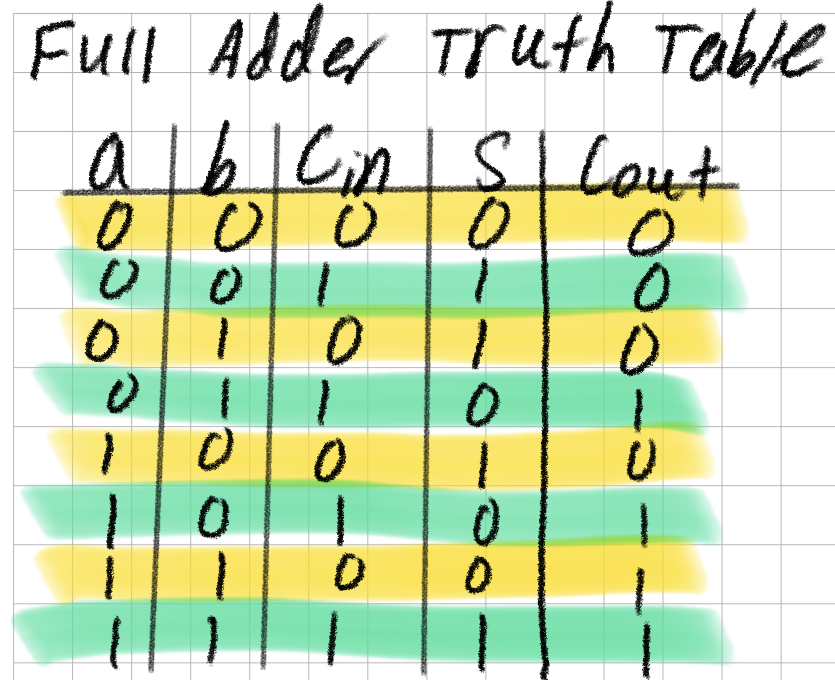 Full Adder Truth Table
a b Cin S Cout
0 0 0 0 0
0 0 1 1 0
0 1 0 1 0
0 1 1 0 1
1 0 0 1 0
1 0 1 0 1
1 1 0 0 1
1 1 1 1 1